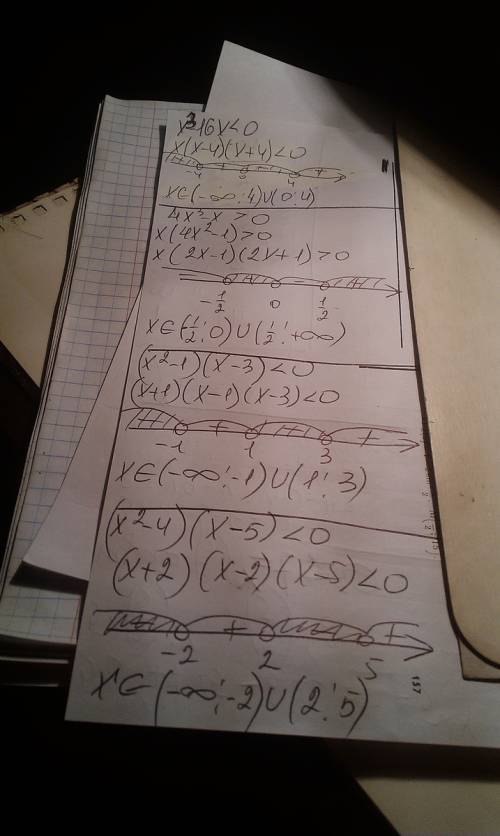 x³-16x<0
x(x-4)(x+4)<0
-4 0 4
x∈(-∞;4)∪(0;4)
4x³-x>0
x(4x²-1)>0
x(2x-1)(2x+1)>0
-1/2 0 1/2
x∈(-1/2;0)∪(1/2;+∞)
(x²-1)(x-3)<0
(x+1)(x-1)(x-3)<0
+ +
-1 1 3
x∈(-∞;-1)∪(1;3)
(x²-4)(x-5)<0
(x+2)(x-2)(x-5)<0
+ +
-2 2 5
x∈(-∞;-2)∪(2;5)
157